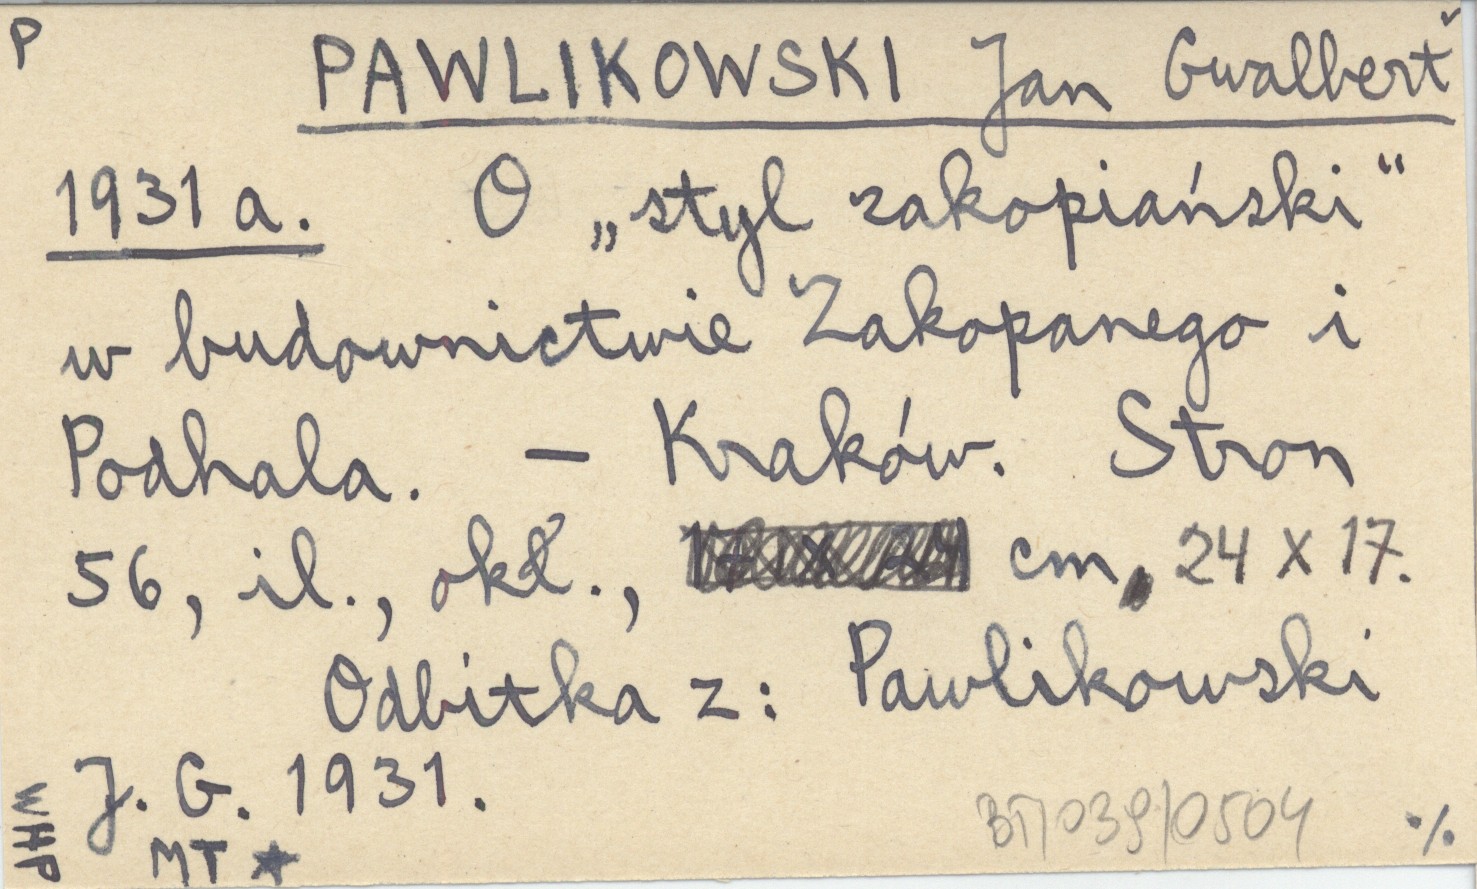 P
PAWLIKOWSKI Jan Gwalbert
1931 a. O „styl zakopiański“
w budownictwie Zakopanego i
Podhala. – Kraków. Stron
56, il., okł., cm, 24 x 17.
Odbitka z: Pawlikowski
J. G. 1931.
BT/039/0504 ./.
WHP
MT ★